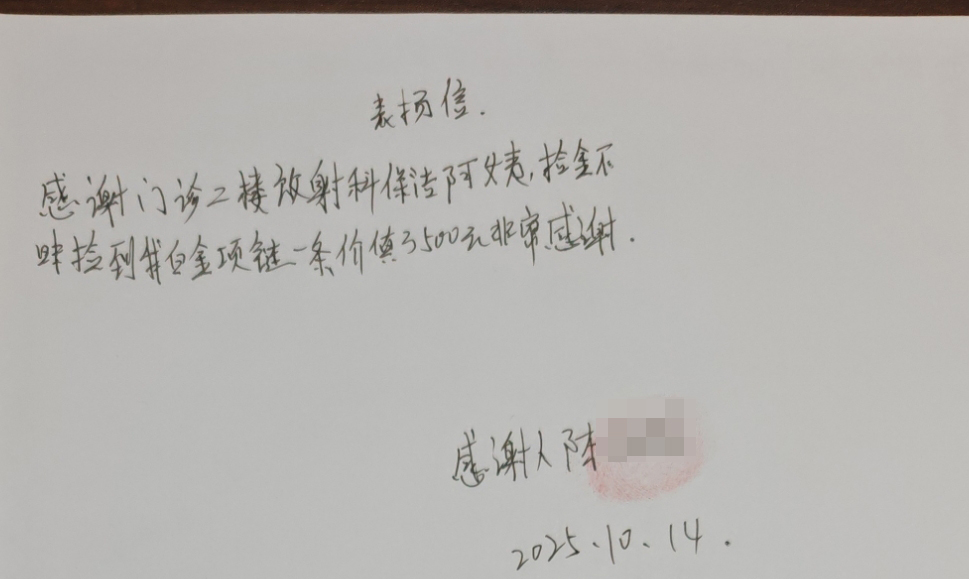 表扬信.
感谢门诊二楼放射科保洁阿姨,捡金不
昧捡到我白金项链一条价值3500元非常感谢.
感谢人陆
2025.10.14.